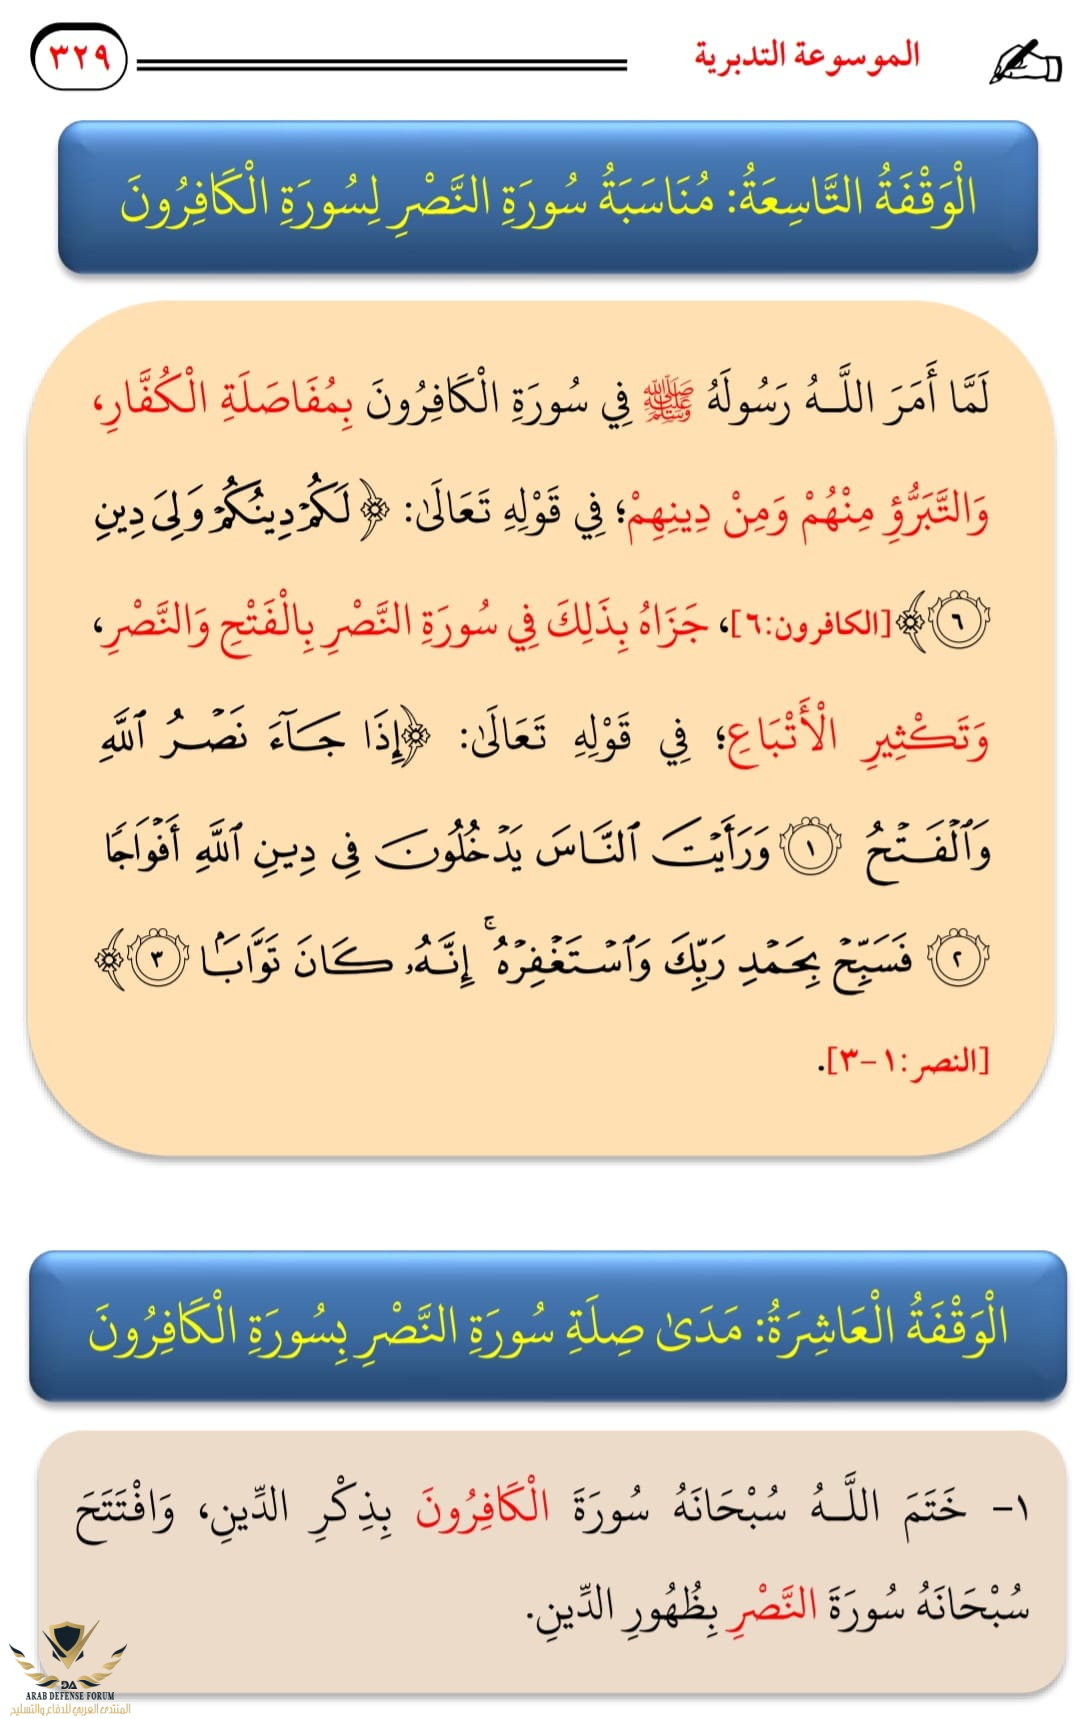 الموسوعة التدبرية
٣٢٩
الْوَقْفَةُ التَّاسِعَةُ: مُنَاسَبَةُ سُورَةِ النَّصْرِ لِسُورَةِ الْكَافِرُونَ
لَمَّا أَمَرَ اللَّهُ رَسُولَهُ ﷺ فِي سُورَةِ الْكَافِرُونَ بِمُفَاصَلَةِ الْكُفَّارِ،
وَالتَّبَرُّؤِ مِنْهُمْ وَمِنْ دِينِهِمْ؛ فِي قَوْلِهِ تَعَالَىٰ: ﴿لَكُمْ دِينُكُمْ وَلِيَ دِينِ
٦﴾ [الكافرون:٦]، جَزَاهُ بِذَلِكَ فِي سُورَةِ النَّصْرِ بِالْفَتْحِ وَالنَّصْرِ،
وَتَكْثِيرِ الْأَتْبَاعِ؛ فِي قَوْلِهِ تَعَالَىٰ: ﴿إِذَا جَآءَ نَصْرُ ٱللَّهِ
وَٱلْفَتْحُ ١ وَرَأَيْتَ ٱلنَّاسَ يَدْخُلُونَ فِي دِينِ ٱللَّهِ أَفْوَاجًا
٢ فَسَبِّحْ بِحَمْدِ رَبِّكَ وَٱسْتَغْفِرْهُ ۚ إِنَّهُۥ كَانَ تَوَّابَۢا ٣﴾
[النصر:١-٣].
الْوَقْفَةُ الْعَاشِرَةُ: مَدَىٰ صِلَةِ سُورَةِ النَّصْرِ بِسُورَةِ الْكَافِرُونَ
١- خَتَمَ اللَّهُ سُبْحَانَهُ سُورَةَ الْكَافِرُونَ بِذِكْرِ الدِّينِ، وَافْتَتَحَ
سُبْحَانَهُ سُورَةَ النَّصْرِ بِظُهُورِ الدِّينِ.
DA
ARAB DEFENSE FORUM
المنتدى العربي للدفاع والتسليح